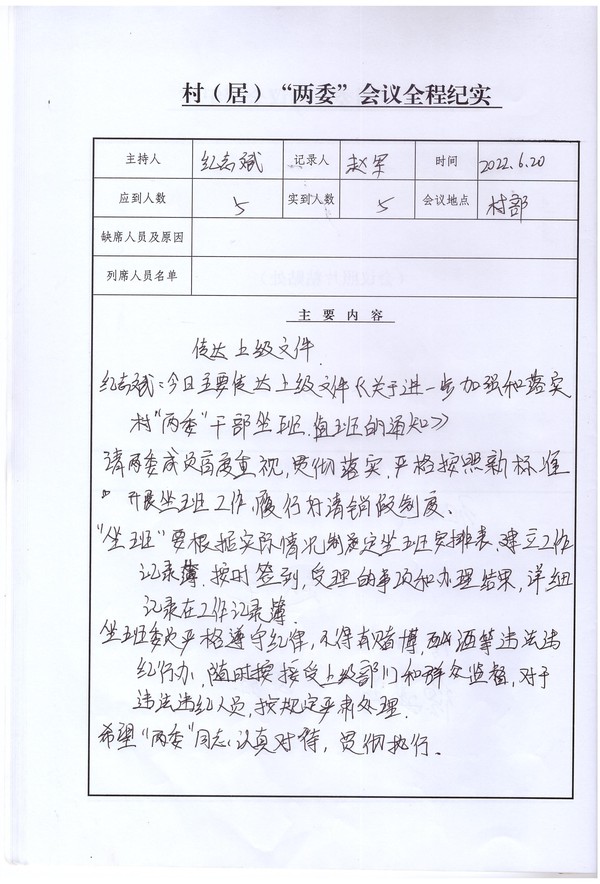 村（居）“两委”会议全程纪实
主持人 纪志斌 记录人 赵军 时间 2022.6.20
应到人数 5 实到人数 5 会议地点 村部
缺席人员及原因
列席人员名单
主要内容
传达上级文件.
纪志斌：今日主要传达上级文件《关于进一步加强和落实
村“两委”干部坐班、值班的通知》
请两委成员高度重视，贯彻落实，严格按照新标准
开展坐班工作，履行好请销假制度、
“坐班”要根据实际情况制定坐班安排表、建立工作
记录薄、按时签到，受理的事项和办理结果，详细
记录在工作记录薄.
坐班要严格遵守纪律，不得有赌博、酗酒等违法违
纪行为，随时接受上级部门和群众监督，对于
违法违纪人员，按规定严肃处理.
希望“两委”同志认真对待，贯彻执行、